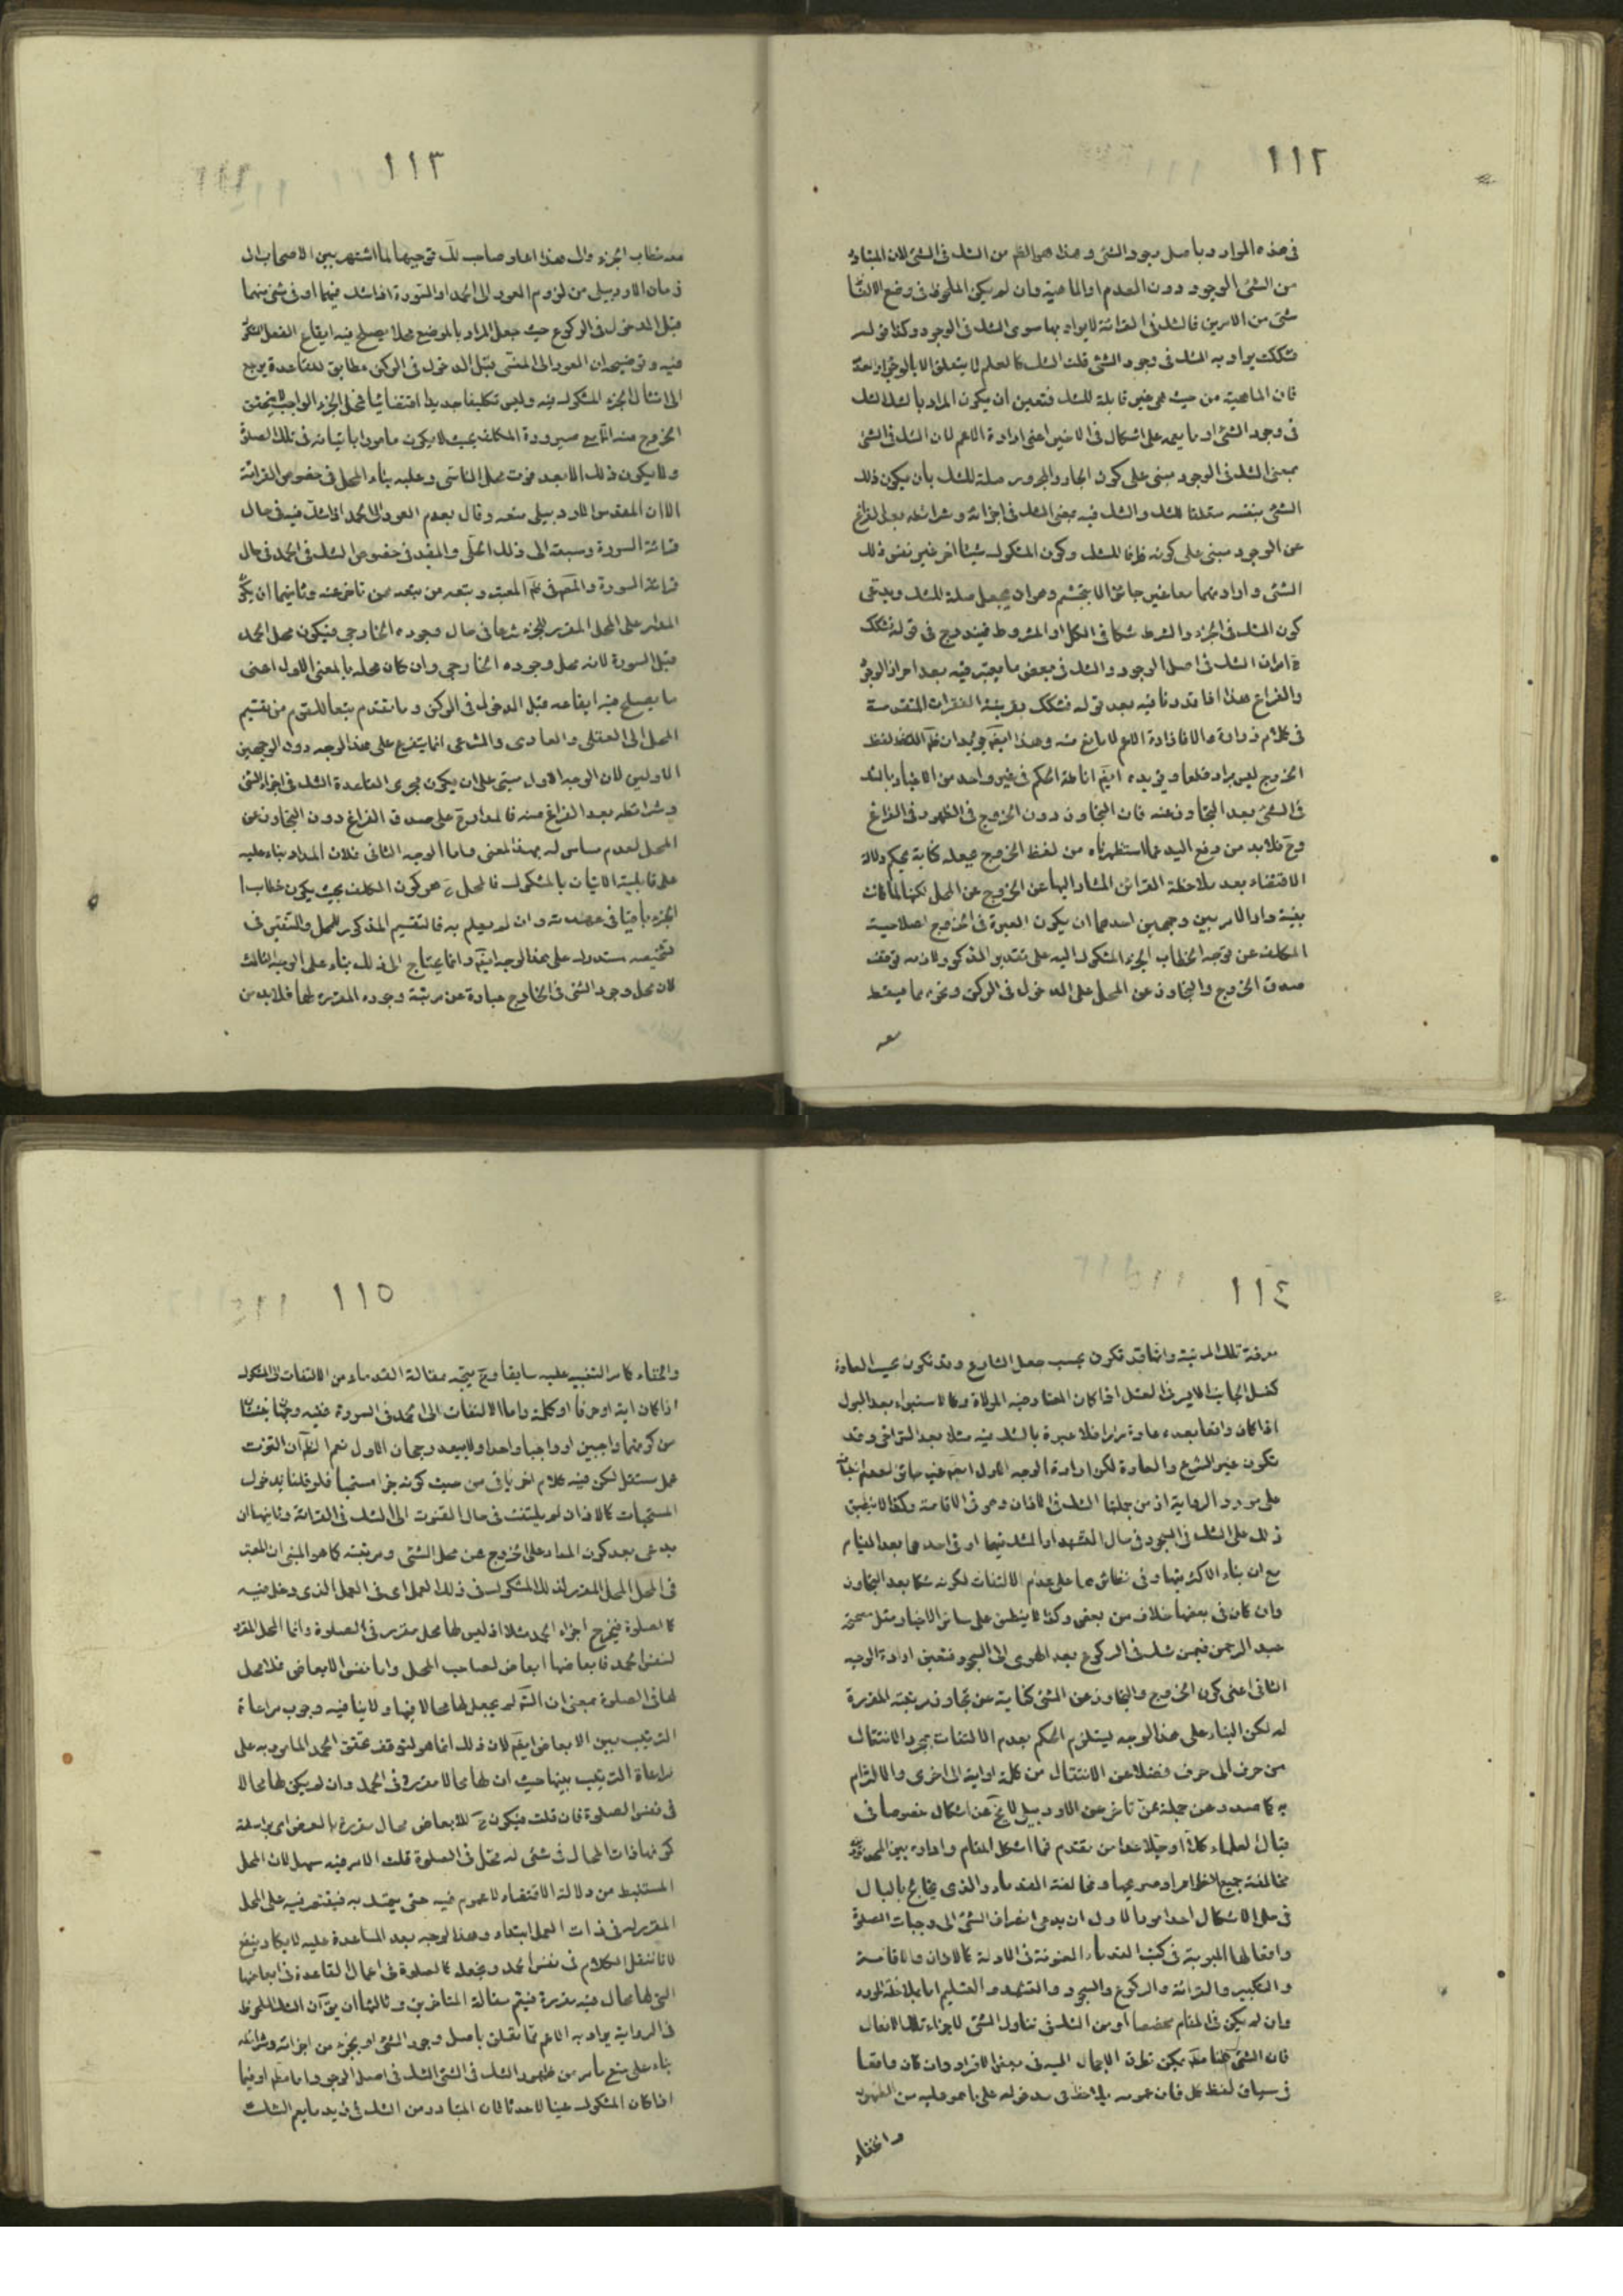 ١١٢
في هذه الموارد وبأصل وجود الشئ وهذا هو الظم من الشك في الشئ لان المتبادر
من الشئ الوجود دون العدم او الماهية وان لم يكن الملحوظ في وضع الالفا
شئ من الامرين فالشك في القرائة لا يراد بها سوى الشك في الوجود وكذا قوله
فشكك يراد به الشك في وجود الشئ قلت الشك كالعلم لا يتعلق الا بالوجود
فان الماهية من حيث هي غير قابلة للشك فتعين ان يكون المراد بالشك الشك
في وجود الشئ او ما يعمه على اشكال في الاخير اعنى ارادة الاعم لان الشك في الشئ
بمعنى الشك في الوجود مبنى على كون الجار والمجرور صلة للشك بأن يكون ذلك
الشئ بنفسه متعلقا للشك والشك فيه بمعنى الشك في اجزائه وشرائطه بعد الفراغ
عن الوجود مبنى على كونه ظرفا للشك وكون المشكوك شيئا اخر غير نفس ذلك
الشئ وارادتهما معا غير جائز الا بتجشم وهو ان يجعل صلة للشك ويدعى
كون الشك في الجزء والشرط شكا في الكل او المشروط فيندرج في قوله فشكك
الشك في اصل الوجود والشك في بعض ما يعتبر فيه بعد احراز الوجود
والفراغ هذا اذا قدرنا فيه بعد قوله فشكك بقرينة الفقرات المتقدمة
في كلام زرارة والا فارادة الاعم لا مانع منه وهذا ايضم يؤيد ان ظم اللفظ لفظ
الخروج ليس يراد قطعا ويؤيده ايضم اناطة الحكم في غير واحد من الاخبار بالشك
في الشئ بعد التجاوز عنه فان التجاوز دون الخروج في الظهور في الفراغ
وح فلابد من رفع اليد عما استظهرناه من لفظ الخروج بجعله كناية بحكم دلالة
الاقتضاء بعد ملاحظة القرائن المشار اليها عن الخروج عن المحل لكنها لما كانت
دار الامر بين وجهين احدهما ان يكون العبرة في الخروج
المكلف عن توجه الخطاب الجزء المشكوك اليه على تقدير المذكور ولازمه توقف
صدق الخروج والتجاوز عن المحل على الدخول في الركن ونحوه مما يسقط
معه
١١٣
معه خطاب الجزء والى هذا اعاد صاحب لك توجيها لما اشتهر بين الاصحاب الى
زمان الاردبيلى من لزوم العود الى الحمد او السورة اذا شك فيهما او في شئ منهما
قبل الدخول في الركوع حيث جعل المراد بالموضع محلا يصلح فيه ايقاع الفعل
فيه وتوضيحه ان العود الى المنسى قبل الدخول في الركن مطابق للقاعدة يرجع
الى امتثال الجزء المشكوك فيه وليس تكليفا جديدا اقتضائيا فمحل الجزء الواجب
الخروج منه صيرورة المكلف بحيث لا يكون مامورا باتيانه في تلك الصلوة
ولا يكون ذلك الا بعد فوت محل الناسى وعليه بناء المحل في خصوص القرائة
الا ان المقدس الاردبيلى منعه وقال بعدم العود الى الحمد اذا شك فيه في حال
قرائة السورة وسبقه الى ذلك الحلى والمفيد في خصوص الشك في الحمد في حال
قرائة السورة والمص في ظم المعتبر وتبعه من تبعه ممن تاخر عنه وثانيهما ان يكون
المدار على المحل المقرر للجزء شرعا في حال وجوده الخارجى فيكون محل الحمد
قبل السورة لانه محل وجوده الخارجى وان كان محله بالمعنى الاول اعنى
ما يصلح فيه ايقاعه قبل الدخول في الركن وما تقدم تبعا للقوم من تقسيم
المحل الى العقلى والعادى والشرعى انما يتفرع على هذا الوجه دون الوجهين
الاولين لان الوجه الاول مبتنى على ان يكون مجرى القاعدة الشك في اجزاء الشئ
وشرائطه بعد الفراغ منه فالمدار ح على صدق الفراغ دون التجاوز عن
المحل لعدم مساس له بهذا المعنى واما الوجه الثانى فلان المدار بناء عليه
على قابلية الاتيان بالمشكوك فالمحل ح هو كون المكلف بحيث يكون خطاب
الجزء باقيا في عهدته وان لم يعلم به فالتقسيم المذكور للمحل والتفتيش في
تشخيصه مستدرك على هذا الوجه ايضم وانما يحتاج الى ذلك بناء على الوجه الثالث
لان محل وجود الشئ في الخارج عبارة عن مرتبة وجوده المقررة لها فلابد من
١١٤
معرفة تلك المرتبة وانها قد تكون بحسب جعل الشارع وقد تكون بحسب العادة
كغسل الجانب الايسر في الغسل اذا كان المعتاد فيه الموالاة وكالاستبراء بعد البول
اذا كان واقعا بعده عادة مرارا فلا عبرة بالشك فيه مثلا بعد التراخى وقد
تكون غير الشرع والعادة لكن ارادة الوجه الاول ايضم غير جائز لعدم
على مورد الرواية اذ من جملتها الشك في الاذان وهو في الاقامة وكذا لا ينطبق
ذلك على الشك في السجود في حال التشهد او الشك فيهما او في احدهما بعد القيام
مع ان بناء الاكثر فيها وفي نظائرهما على عدم الالتفات لكونه شكا بعد التجاوز
وان كان في بعضها خلاف من بعض وكذا لا ينطبق على سائر الاخبار مثل صحيحة
عبد الرحمن فيمن شك في الركوع بعد الهوى الى السجود فتعين ارادة الوجه
الثانى اعنى كون الخروج والتجاوز عن الشئ كناية عن تجاوز مرتبته المقررة
له لكن البناء على هذا الوجه يستلزم الحكم بعدم الالتفات بمجرد الانتقال
من حرف الى حرف فضلا عن الانتقال من كلمة او اية الى اخرى والالتزام
به كما صدر عن جملة ممن تاخر عن الاردبيلى لا يخ عن اشكال خصوصا في
قبال العلماء كلا او جلا عدا من تقدم فما اشكل المقام واداره بين
مخالفة جميع الاخبار او صريحها ومخالفة القدماء والذى يختلج بالبال
في حل الاشكال احد امور الاول ان يدعى انصراف الشئ الى وجبات الصلوة
وافعالها المبوبة في كتب القدماء المعنونة في الادلة كالاذان والاقامة
والتكبير والقرائة والركوع والسجود والتشهد والتسليم اما بملاحظة المورد
وان لم يكن في المقام مخصصا او من الشك في تناول الشئ لاجزاء تلك الافعال
فان الشئ يمكن تطرق الاجمال اليه في بعض الافراد وان كان واقعا
في سياق لفظ كل فان عمومه يلاحظ في مدخوله على ما هو عليه من الظهور
والخفاء
١١٥
والخفاء كما مر التنبيه عليه سابقا وح يتجه مقالة القدماء من الالتفات الى المشكوك
اذا كان اية او حرفا او كلمة واما الالتفات الى الحمد في السورة ففيه وجهان
من كونهما واجبين او واجبا واحدا ولا يبعد رجحان الاول نعم الظم ان القنوت
عمل مستقل لكن فيه كلام اخر ياتى من حيث كونه جزا مستحبا فلو قلنا بدخول
المستحبات كالاذان لم يلتفت في حال القنوت الى الشك في القرائة وثانيها ان
يدعى بعد كون المدار على الخروج عن محل الشئ ومرتبته كما هو المبنى ان المعتبر
في المحل المحل المقرر لذلك المشكوك في ذلك العمل اى في العمل الذى دخل فيه
كالصلوة فيخرج اجزاء الحمد مثلا اذ ليس لها محل مقرر في الصلوة وانما المحل المقرر
لنفس الحمد فابعاضها ابعاض لصاحب المحل واما نفس الابعاض فلا محل
لها في الصلوة بمعنى ان الش لم يجعل لها محالا فيها ولا ينافيه وجوب مراعاة
الترتيب بين الابعاض ايضم لان ذلك انما هو لتوقف تحقق الحمد المامور به على
مراعاة الترتيب بينها حيث ان لها محالا مقررة في الحمد وان لم يكن لها محالا
في نفس الصلوة فان قلت فيكون ح للابعاض محال مقررة بالعرض اى بواسطة
كونها ذات المحال في شئ له محل في الصلوة قلت الامر فيه سهل لان المحل
المستنبط من دلالة الاقتضاء لا عموم فيه حتى يتمسك به فيقتصر فيه على المحل
المقرر له في ذات العمل ابتداء وهذا الوجه بعد المساعدة عليه لا يكاد ينفع
لانا ننقل الكلام في نفس الحمد ونجعله كالصلوة في اعمال القاعدة في ابعاضها
التى لها محال فيه مقررة فيتم مقالة المتاخرين وثالثها ان يق ان الشك الملحوظ
في الرواية يراد به الاعم مما تعلق باصل وجود الشئ او بجزء من اجزائه وشرائطه
بناء على منع ما مر من ظهور الشك في الشئ الشك في اصل الوجود اما مطم او فيما
اذا كان المشكوك عينا لا حدثا فان المتبادر من الشك في زيد ما يعم الشك